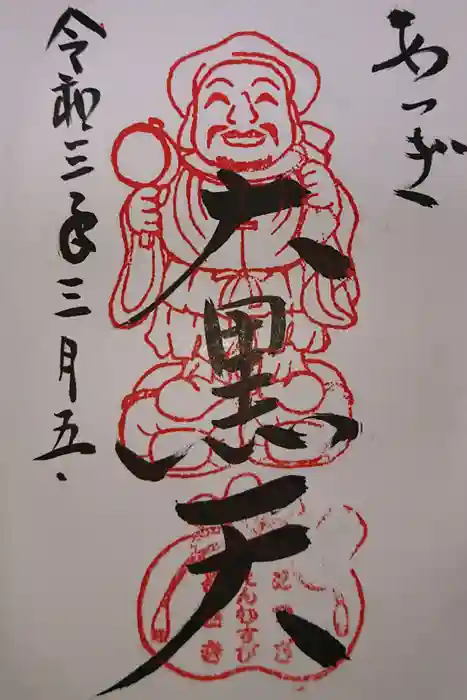 あつぎ
大黒天
えんむすび
令和三年三月五